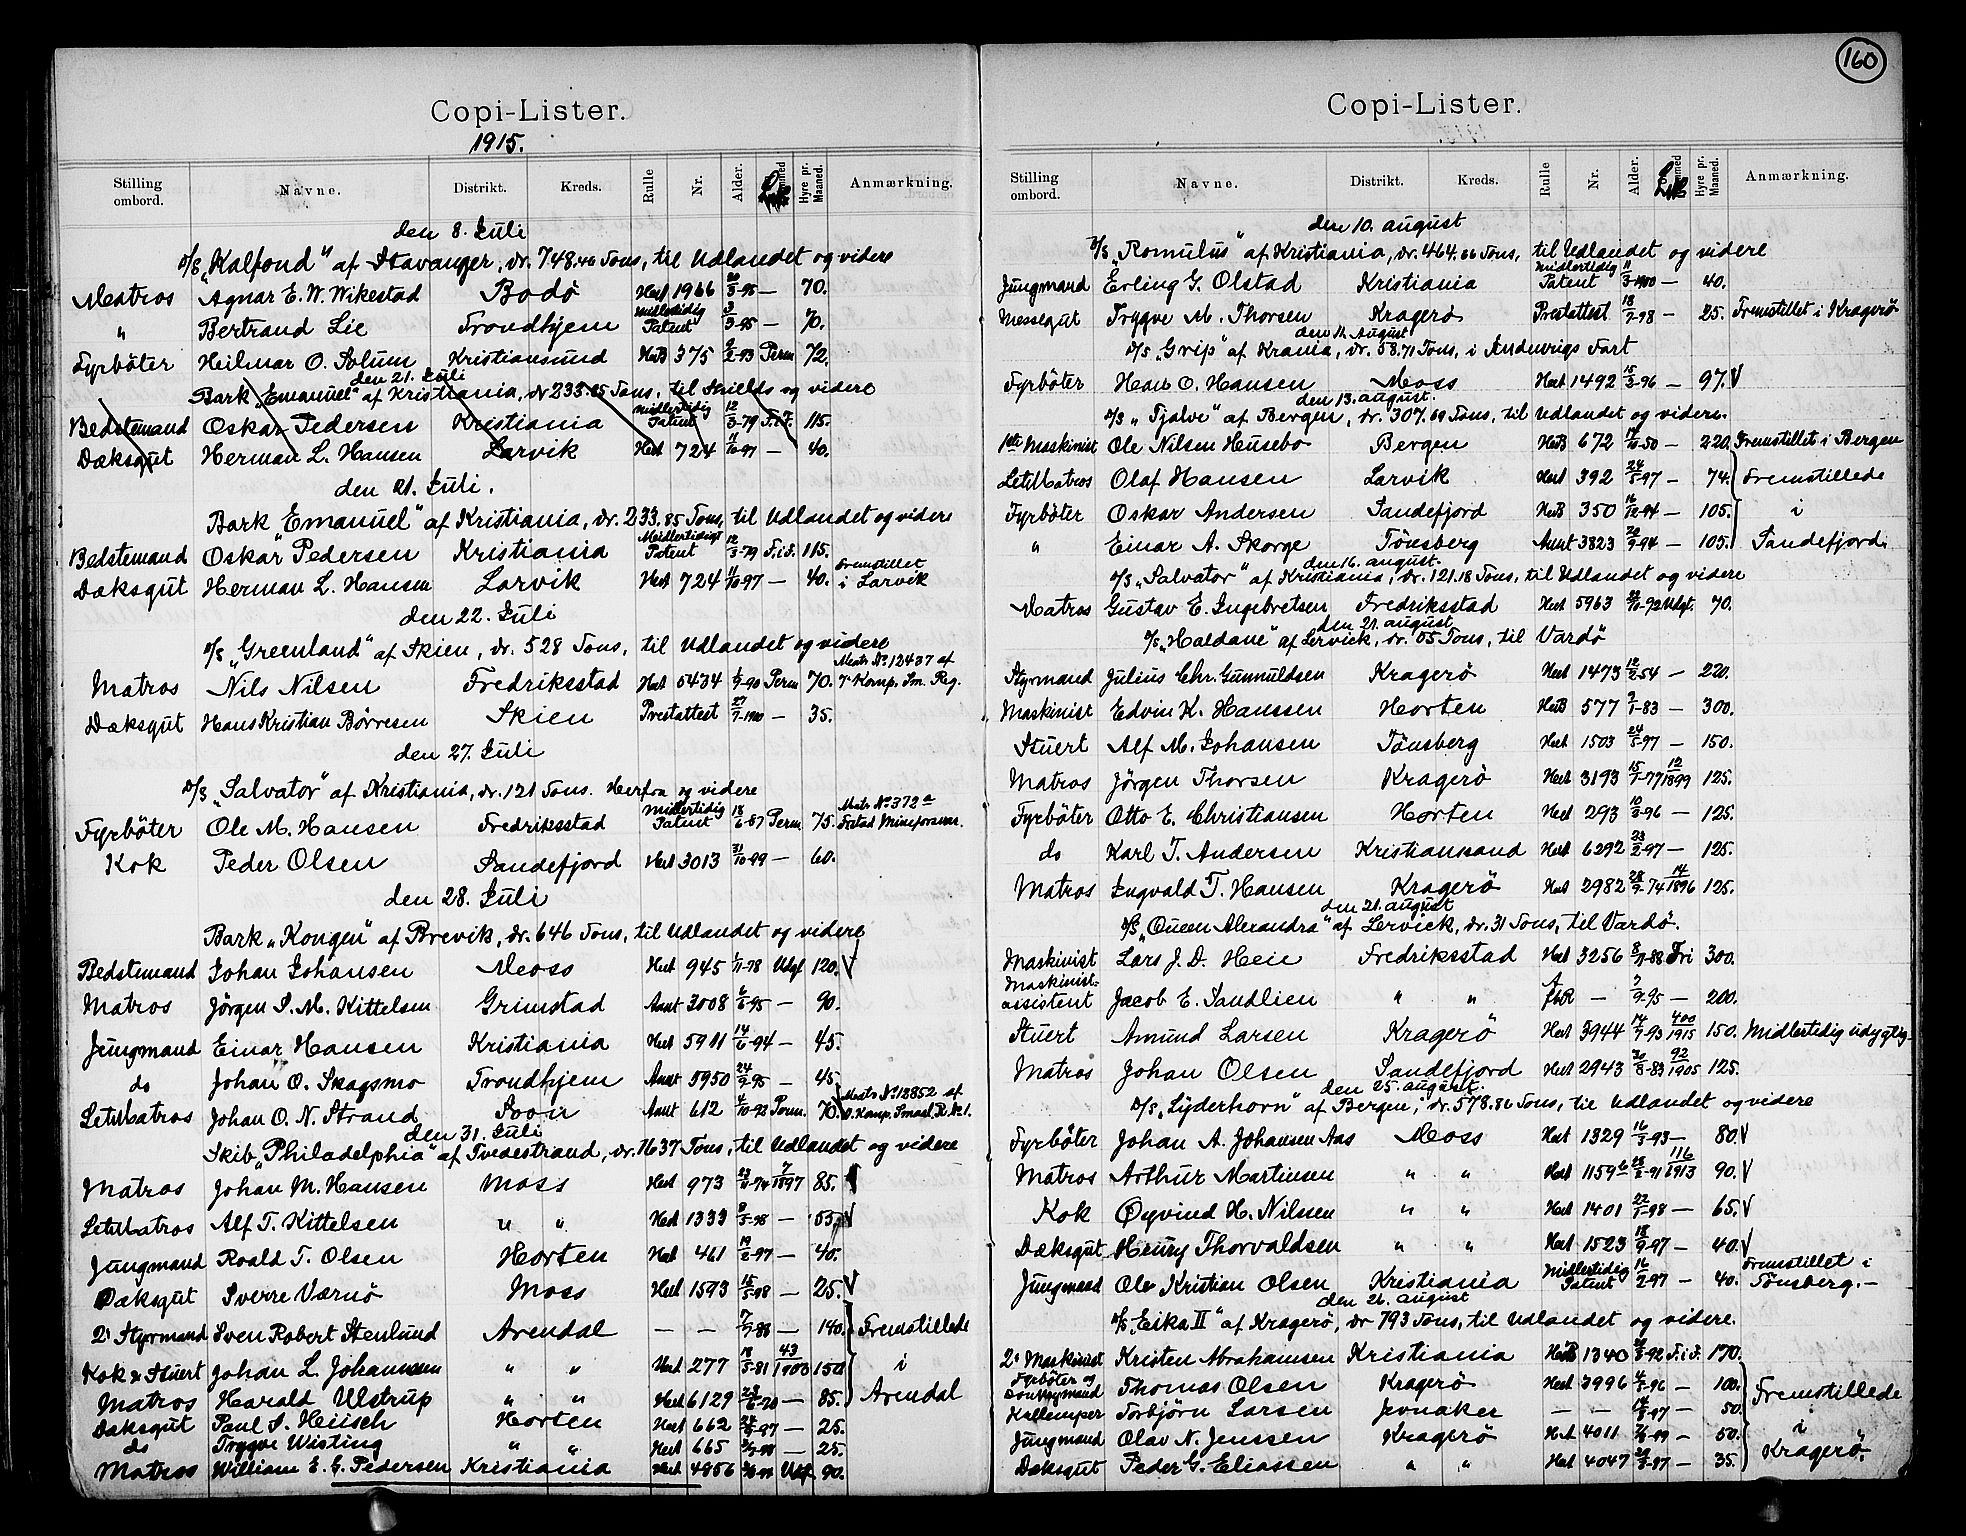 160
Copi-Lister.
1915.
Stilling ombord. Navne. Distrikt. Kreds. Rulle Nr. Alder. Hyre pr. Maaned. Anmærkning.
den 8. Juli
D/S „Kalfond" af Stavanger, dr. 748.46 Tons, til Udlandet og videre
Matros Agnar E. W. Wikestad Bodö Hovt 1966 3-95 — 70.
" Bertrand Lie Trondhjem Midlertidig Patent 3-95 — 70.
Fyrböter Heilmar O. Solum Kristiansund HovB 375 2-93 Perm 72.
den 21. Juli
Bark „Emanuel" af Kristiania, dr 233.85 Tons, til Shields og videre
Bedstemand Oskar Pedersen Kristiania Midlertidig Patent 12/3-79 F.i.F. 115.
Dæksgut Herman L. Hansen Larvik Hovt 724 11/10-97 — 40.
den 21. Juli.
Bark „Emanuel" af Kristiania, dr. 233.85 Tons, til Udlandet og videre
Bedstemand Oskar Pedersen Kristiania Midlertidigt Patent 12/3-79 F.i.F. 115.
Dæksgut Herman L. Hansen Larvik Hovt 724 11/10-97 — 40. Fremstillet i Larvik
den 22. Juli
D/S „Greenland" af Skien, dr. 528 Tons, til Udlandet og videre
Matros Nils Nilsen Fredriksstad Hovt 5434 9-90 Perm 70. Matr. No. 12437 af 7' Komp. Sm. Reg.
Dæksgut Hans Kristian Børresen Skien Prestattest 27/7-1900 — 35.
den 27. Juli
D/S „Salvator" af Kristiania, dr. 121 Tons. Herfra og videre
Fyrböter Ole M. Hansen Fredriksstad Midlertidig Patent 18/6-87 Perm 75. Matr. No. 372 Frstad Mineforsvar.
Kok Peder Olsen Sandefjord Hovt 3013 31/10-99 — 60.
den 28. Juli
Bark „Kongen" af Brevik, dr. 646 Tons, til Udlandet og videre
Bedstemand Johan Johansen Moss Hovt 945 11-78 Udgt 120. V
Matros Jörgen S. M. Kittelsen Grimstad Annt 3008 6/6-95 — 90.
Jungmand Einar Hansen Kristiania Hovt 5911 14/6-94 — 45.
do Johan O. Skagsmo Trondhjem Annt 5950 24/9-95 — 45.
LetMatros Johan O. N. Strand Annt 612 4/10-92 Perm. 70. Matr. No. 12852 af
den 31. Juli
Skib „Philadelphia" af Tvedestrand, dr. 1637 Tons, til Udlandet og videre
Matros Johan M. Hansen Moss Hovt 973 23/11-74 7/1897 85.
LetMatros Alf T. Kittelsen " " Hovt 1333 5-98 — 55. V
Jungmand Roald T. Olsen Horten Hovt 461 19/2-97 — 40.
Dæksgut Sverre Værnö Moss Hovt 1593 15/5-98 — 25. V
2. Styrmand Sven Robert Stenlund Arendal — — 7/7-86 — 140. Fremstillede
Kok & Stuert Johan L. Johannesen " " Hovt 277 18/5-81 43/1903 150 i
Matros Harald Ulstrup " " Hovt 6129 — 85. Arendal
Dæksgut Paul S. Horten Hovt 662 — 25.
do Trygve Wisting " " Hovt 665 — 25.
Matros William E. G. Pedersen Kristiania Hovt 4856 Udf. 90.
Copi-Lister.
Stilling ombord. Navne. Distrikt. Kreds. Rulle Nr. Alder. Hyre pr. Maaned. Anmærkning.
den 10. august
D/S „Romulus" af Kristiania, dr. 464.66 Tons, til Udlandet og videre
Jungmand Erling G. Olstad Kristiania Midlertidig Patent 11/3-1900 — 40.
Messegut Trygve M. Thorsen Kragerö Prestattest 18/7-98 — 25. Fremstillet i Kragerö
den 11. august
D/S „Grip" af Krania, dr. 58.71 Tons, i Indenrigs Fart
Fyrböter Hans O. Hansen Moss Hovt 1492 15/3-96 — 97. V
den 13. august.
D/S „Fjalve" af Bergen, dr. 307.69 Tons, til Udlandet og videre.
1ste Maskinist Ole Nilsen Husebo Bergen HovB 672 10-50 — 220. Fremstillet i Bergen
LetMatros Olaf Hansen Larvik Hovt 392 24/5-97 — 74. Fremstillede
Fyrböter Oskar Andersen Sandefjord HovB 350 16/10-94 — 105. i
" Einar A. Skorge Tönsberg Annt 3823 9-94 — 105. Sandefjord.
den 16. august.
D/S „Salvator" af Kristiania, dr. 121.18 Tons, til Udlandet og videre
Matros Gustav E. Ingebretsen Fredriksstad Hovt 5963 10-92 Udgt. 70.
den 21. august
D/S „Haldane" af Lervick, dr. 65 Tons, til Vardö
Styrmand Julius Chr. Gunnuldsen Kragerö Hovt 1473 12/2-54 — 220.
Maskinist Edvin K. Hanssen Horten HovB 577 1-83 — 300.
Stuert Alf M. Johansen Tönsberg Hovt 1503 24/5-97 — 150.
Matros Jörgen Thorsen Kragerö Hovt 3193 15/1-77 12/1899 125.
Fyrböter Otto E. Christiansen Horten Hovt 293 10/3-96 — 125.
do Karl T. Andersen Kristianssand Hovt 6292 23/2-97 — 125.
Matros Ingvald T. Hansen Kragerö Hovt 2982 28/9-74 14/1896 125.
den 21. august
D/S „Queen Alexandra" af Lervick, dr. 31 Tons, til Vardö.
Maskinist Lars J. D. Heie Fredriksstad Hovt 3256 8/7-88 Fri 300.
Maskinist-assistent Jacob E. Sandlien " " — 9-95 — 200.
Stuert Amund Larsen Kragerö Hovt 3944 14/7-93 400/1915 150. Midlertidig udygtig.
Matros Johan Olsen Sandefjord Hovt 2943 8-83 92/1905 125.
den 25. august.
D/S „Lyderhorn" af Bergen, dr. 578.86 Tons, til Udlandet og videre
Fyrböter Johan A. Johansen Aas Moss Hovt 1329 16/3-93 — 80. V
Matros Arthur Martinsen " " Hovt 1159 -91 116/1913 90. V
Kok Öyvind H. Nilsen " " Hovt 1401 22/1-98 — 65. V
Dæksgut Henry Thorvaldsen " " Hovt 1523 18/9-97 — 40. V
Jungmand Ole Kristian Olsen Kristiania Midlertidig Patent 16/2-97 — 40. Fremstillet i Tönsberg. —
den 26. august
D/S „Eika II" af Kragerö, dr 793 Tons, til Udlandet og videre.
2. Maskinist Kristen Abrahamsen Kristiania HovB 1340 -92 F.i.F. 170.
Fyrböter og Donkeymand Thomas Olsen Kragerö Hovt 3996 -96 — 100. Fremstillede
Kullemper Torbjörn Larsen Jevnaker — — -97 — 50.
Jungmand Olav N. Jenssen Kragerö Hovt 4011 -99 — 50. i
Dæksgut Peder G. Eliassen " " Hovt 4047 -97 — 35. Kragerö.